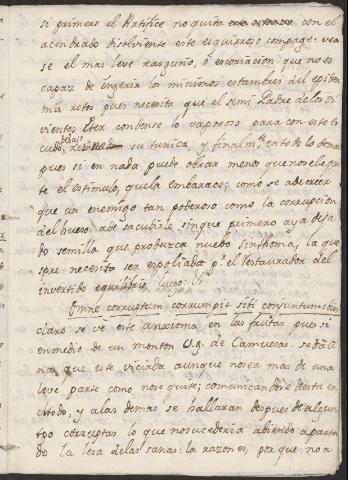 si primero el Artifice no quita con el
acendrado disolviente este esquirroso compage: vea
se el mas leve rasguño, ò escoriacion que no es
capaz de ingerir los minimos estambres del epider
mis rotos pues necesita que el semi Padre delos vi
vientes Eter condense lo vaporoso para con este es
cudo, su tunica, y finalmte. en todo lo demas
pues si en nada puede obrar menos que nosele qui
te el estimulo, quela embaraze; como se ade creer
que un enemigo tan poderoso como la corrupcion
del hueso, ade sacudirla sin que primero aya deja
do semilla que produzca nuebo sinthoma, la que
spre necesita ser espoliada pr. el restaurador del
invertido equilibrio, vuso: Vr
Omne corruptum corrumpit sibi conjuntum: bien
claro se ve este anxioma en las frutas, pues si
enmedio de un monton V.g. de Camuesas. se da u
na que este viciada aunque no sea mas de una
leve parte como nose quite; comunicandose desta en
entodo, y alas demas se hallaran despues de algun
tpo corruptas lo que nosucederia abiendo aparta
do la lesa delas sanas: la razon es, por que no a